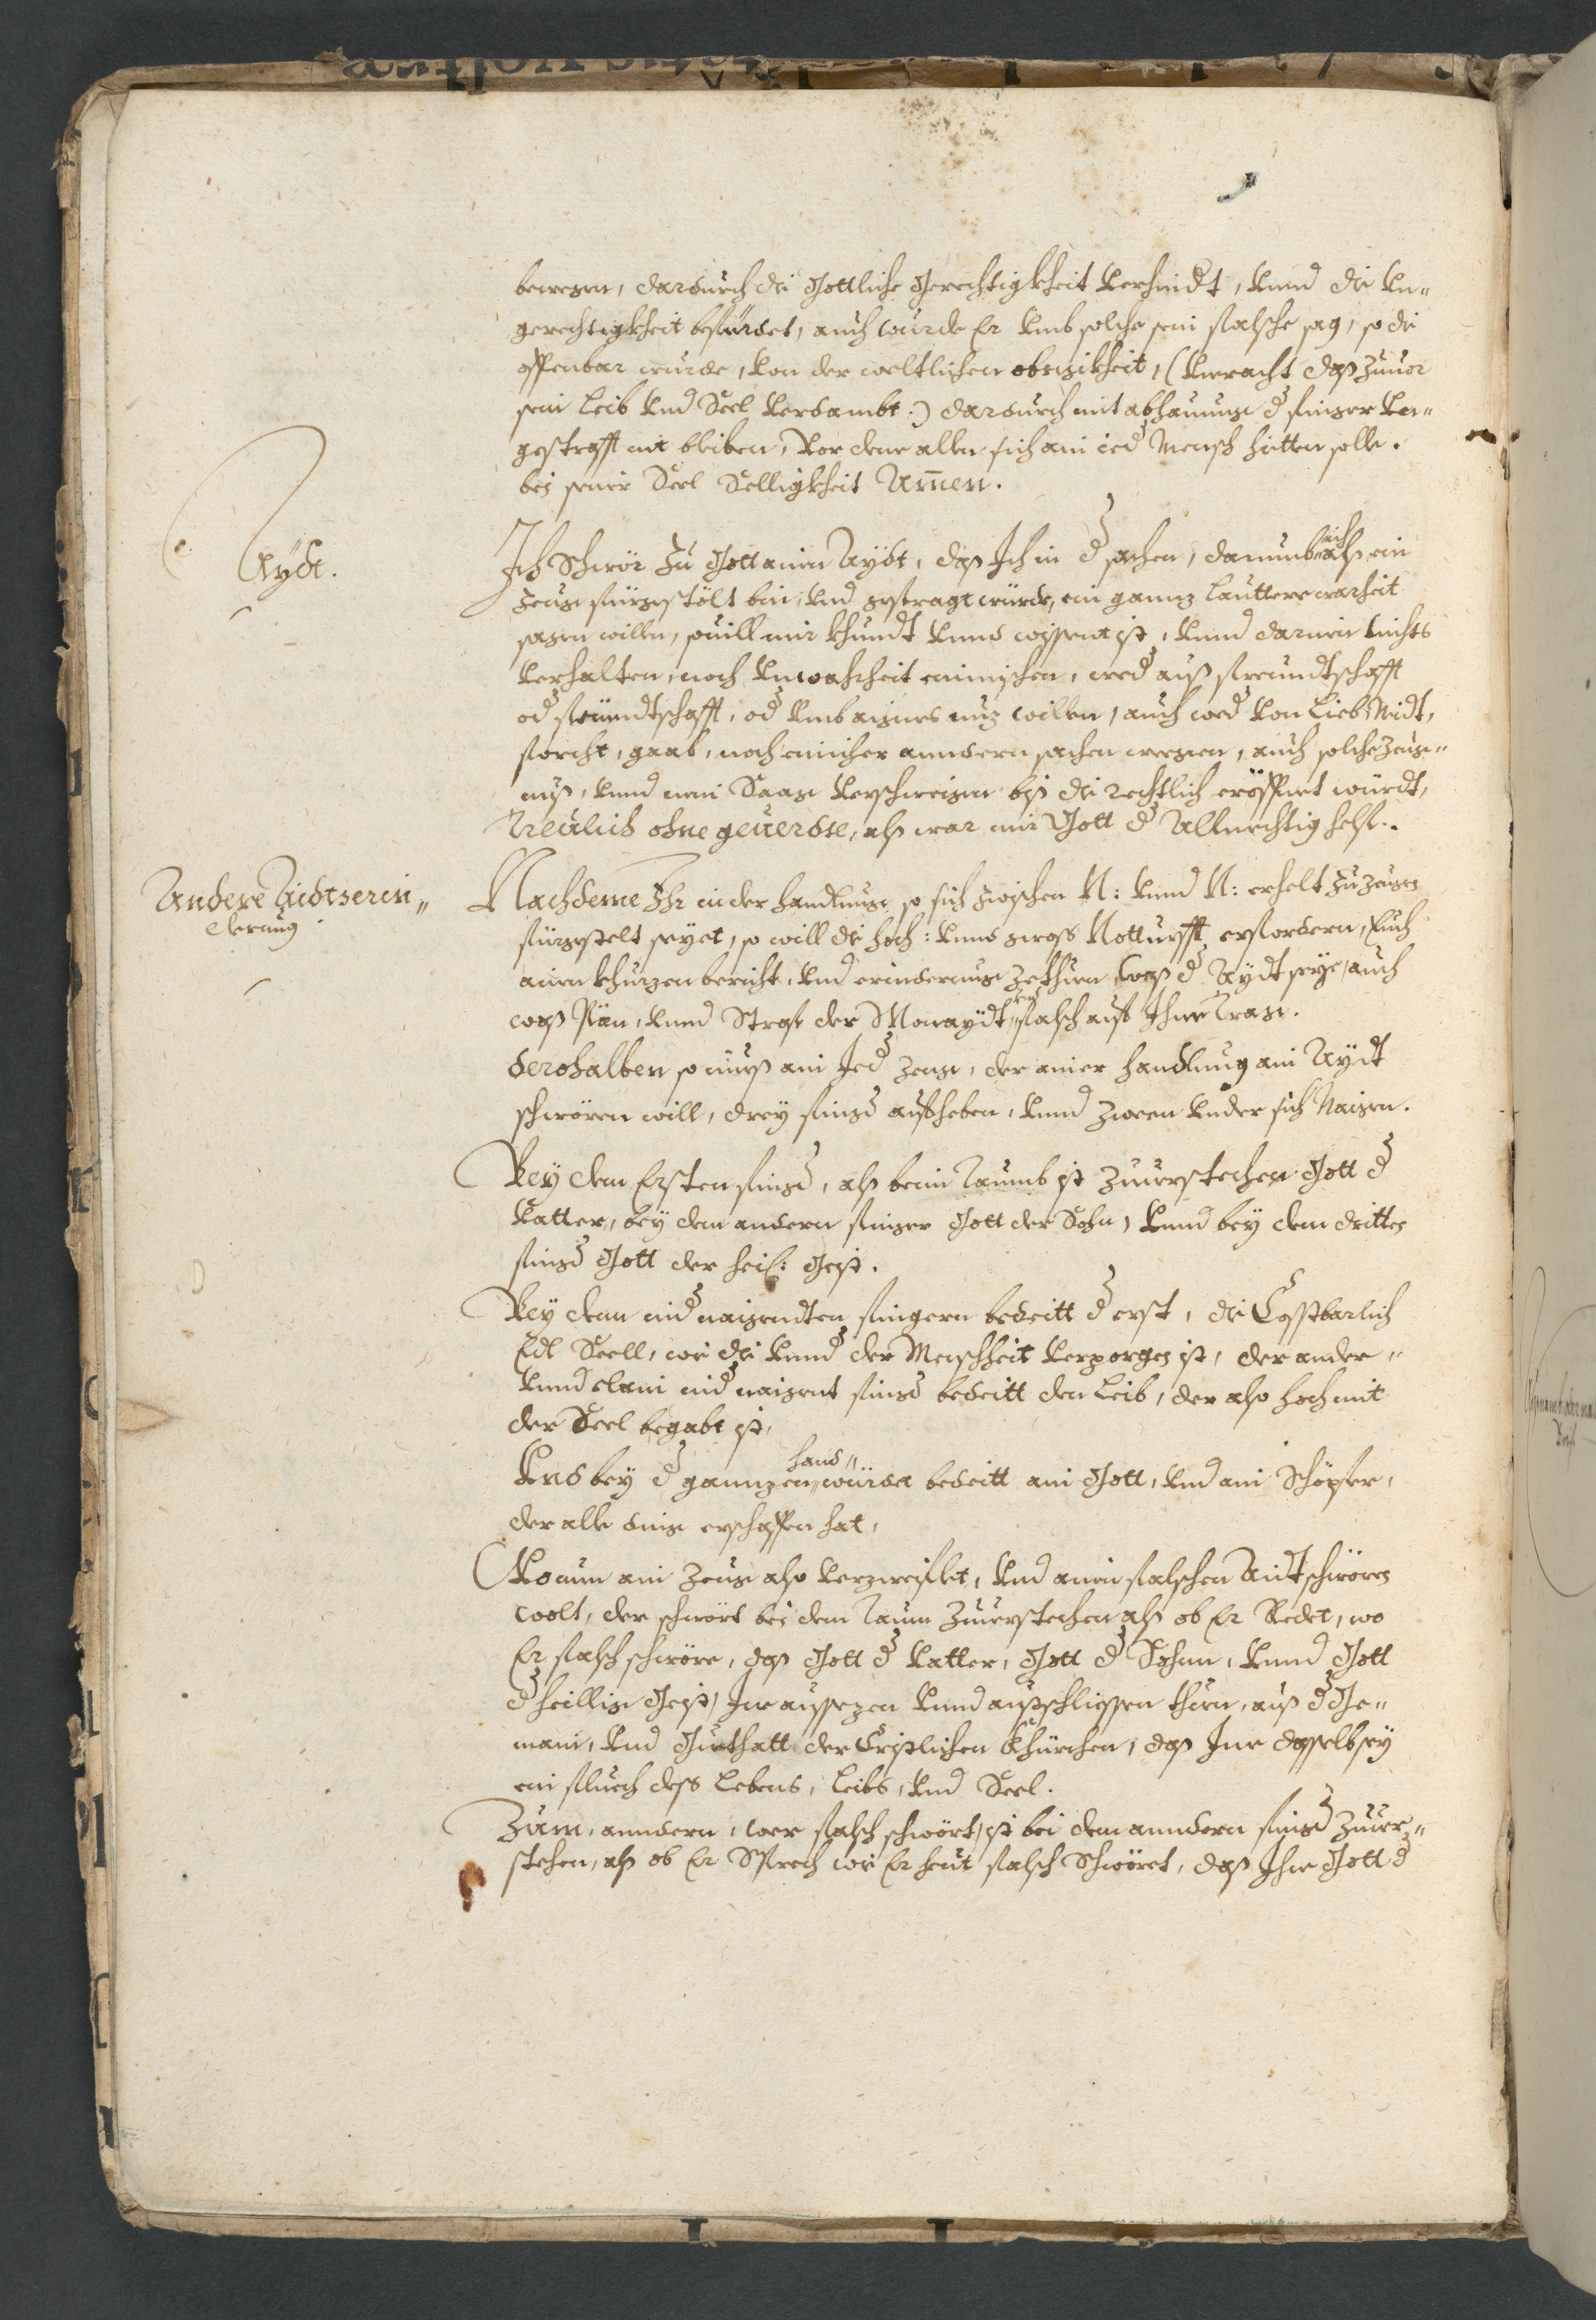 bewegen, dardurch die Göttliche Gerechtigkheit verhindt, vnnd die vn„
gerechtigkheit befürdet, auch wurde Er vmb solche sein falsche sag, so die
offenbar wurde, von der weltlichen obrigkheit, (vneracht daß zuuor
sein Leib vnd Seel verdambt:) dardurch mit abhauung d finger vn„
gestrafft nit bleiben, Vor deme allen sich ain ied Mensch hietten solle.
bei seiner Seel Selligkheit Amen.
Aydt.
Ich Schwör zu Gott ainen Aydt, daß Ich in d sachen, darumb ich alß ein
Zeug fürgestölt bin, vnd gefragt würde, ein gannz lauttere warheit
sagen willen, souill mir khundt vnnd wissent ist, vnnd darinen nichts
verhalten, noch vnwahrheit einmischen, wed auß freundtschafft
od feündtschafft, od vmb aignes nuz willen, auch wed von Lieb, Neidt,
forcht, gaab, noch einicher anndern sachen wegen, auch solche Zeug„
nuß, vnnd mein Saag verschweigen biß die rechtlich eröffnet würdt,
Treülich ohne geuerdte, alß war mir Gott d Allmechtig helf.
Andere Aidtserin„
derung
Nachdeme Ihr in der handlung so sich zwischen N: vnnd N: erhelt zu zeugen
fürgestelt seyet, so will die hoch: vnnd gross Notturfft erfordern, Euch
ainen khurzen bericht, vnd erinderung zethuen waß d Aydt seye, auch
waß Pän, vnnd Straf der Monaydt vnd falsch auf Ihme trage.
derohalben so muß ain Jed zeug, der ainer handlung ain Aydt
schwören will, drey fingd aufheben, vnnd zween vnder sich Naigen.
Bey dem Ersten fingd, alß beim Daumb ist zuuerstechen Gott d
Vatter, bey dem andern finger Gott der Sohn, vnnd bey dem dritten
fingd Gott der heil: Geist.
Bey dem nid naigendten fingern bedeitt d erst, die Cosstbarlich
Edl Seell, wie die vnnd der Menschheit verporgen ist, der ander„
vnnd clain nid naigent fingd bedeitt den Leib, der also hoch mit
der Seel begabt ist,
Vnd bey d gannzen hand„ würdet bedeitt ain Gott, vnd ain Schöpfer,
der alle ding erschaffen hat,
Wo nun ain Zeug also verzweiflet, vnd ainen falschen Aidt schwören
wolt, der schwört bei dem Daum zuuerstechen alß ob Er Redet, wo
Er falsch schwöre, daß Gott d Vatter, Gott d Sohnn, vnnd Gott
d heillig Geist, Ine aussezen vnnd außschliessen thuen, auß d Ge„
main, vnd Guethatt der Cristlichen Khürchen, daß Ime dasselb sey
ein fluech dess Lebens, Leibs, vnd Seel.
Zum anndern, wer falsch schwört, ist bei dem anndern fingd zuuer„
stehen, alß ob Er Sprech wie Er heut falsch Schwöret, daß Ihne Gott d